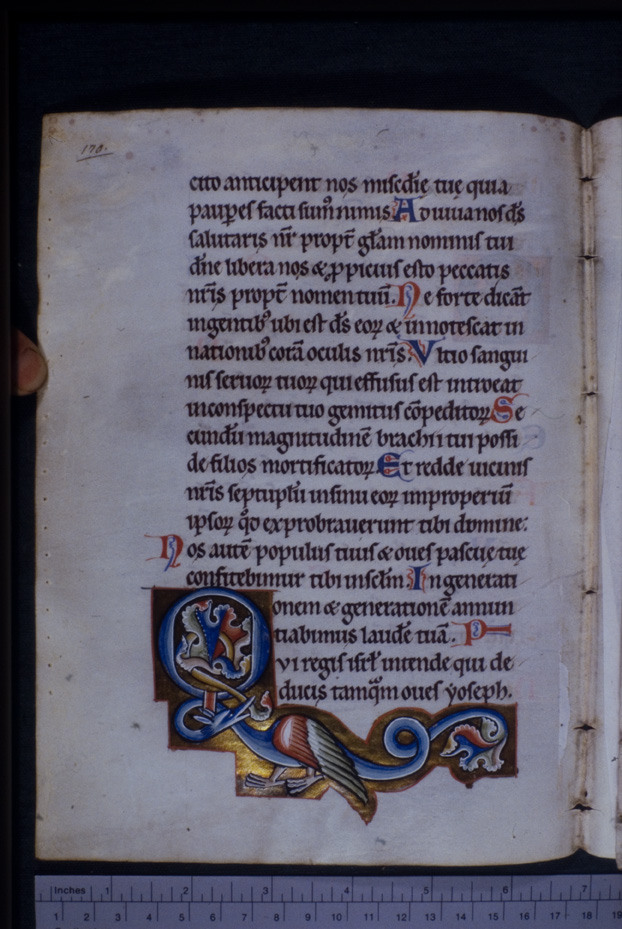 170.
cito anticipent nos misc̄die tuę quia
paup̱es facti sum᷒ nimis. Adiuua nos d̄s
salutaris nr̄ propt̄ gl̄am nominis tui
dn̄e libera nos & ꝓpicius esto peccatis
nr̄is propt̄ nomen tuū. Ne forte dicāt
ingentib᷒ ubi est d̄s eoꝝ & innotescat in
nationib᷒ corā oculis nr̄is. Vltio sangui
nis seruoꝝ tuoꝝ qui effusus est introeat
inconspectu tuo gemitus cōpeditoꝝ Se
cundū magnitudinē brachii tui possi
de filios mortificatoꝝ Et redde uicinis
nr̄is septuplū insinu eoꝝ improperiū
ipsoꝝ qͦo exprobrauerunt tibi domine.
Nos autē populus tuus & oues pascuę tuę
confitebimur tibi insc̄lm. Ingenerati
onem & generationē annun
tiabimus laudē tuā.
Qui regis isrl̄ intende qui de
ducis tamqͣm oues yoseph.
Inches 1 2 3 4 5 6 7
1 2 3 4 5 6 7 8 9 10 11 12 13 14 15 16 17 18 19